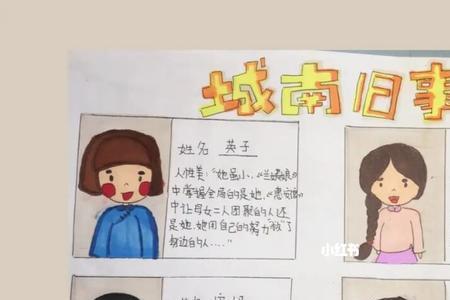 城南旧事
姓名 英子
人性美:"她虽小,《兰姨娘》
中掌握全局的是她,《惠安馆》
中让母女二人团聚的人还
是她,她用自己的努力"救"了
身边的人……"
小红书